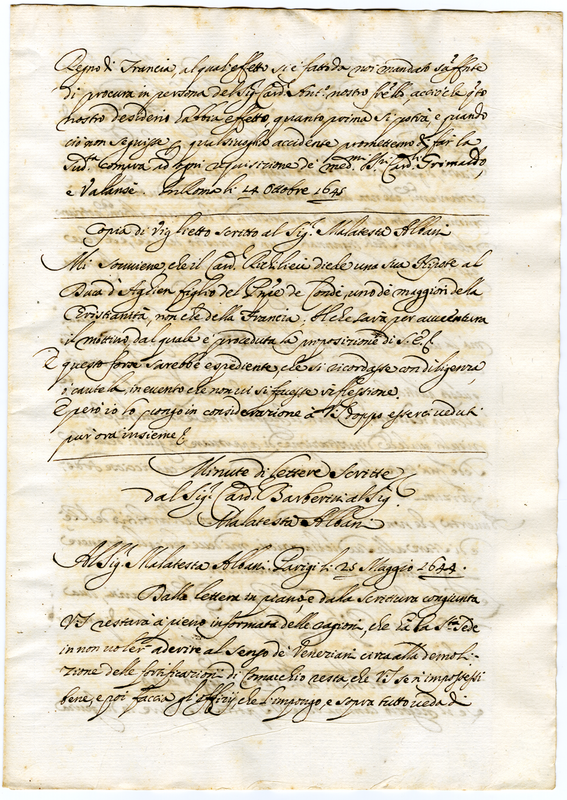 Regno di Francia, al qual effetto si è fatto da noi mandato
di procura in persona del Sig.r Card. Ant.o nostro acciò che
nostro desiderio habbia effetto, quanto prima si potrà, e quando
ciò non seguisse qualsivoglia accidente promettemo di far la
sud.ta compra ad ogni requisizione de med.mi SS.ri Card.li Grimaldo,
e Valansè. In Roma li 14 Ottobre 1645
Copia di Viglietto Scritto al Sig.r Malatesta Albani
Mi souuiene, che il Card. Richilieu diede una sua Nipote al
Duca d'Anghien figlio del Pn̄pe de Condè, uno de maggiori della
Christianità, non che della Francia. Il che sarà per auuentura
il mottiuo dal quale è proceduta la proposizione di S. E.
E questo forse sarebbe espediente, che si ricordasse con diligenza,
o cautela, in euento che non ui si facesse riflessione.
E però io lo pongo in considerazione a V.S. doppo esserci ueduti
pur'ora insieme
Minute di lettere Scritte
dal Sig.r Card. Barberini al Sig.r
Malatesta Albani
Al Sig.r Malatesta Albani. Parigi li 25 Maggio 1644.
Dalla lettera in piano, e dalla Scrittura congiunta
V.S. restarà a pieno informata delle cagioni, che hà la S.ta Sede
in non uoler aderire al Senso de Veneziani circa alla demoli-
zione delle fortificazioni di Comacchio resta, che V.S. se n'impossessi
bene, e poi faccia gl'offizij, che l'impongo, e sopra tutto ueda di